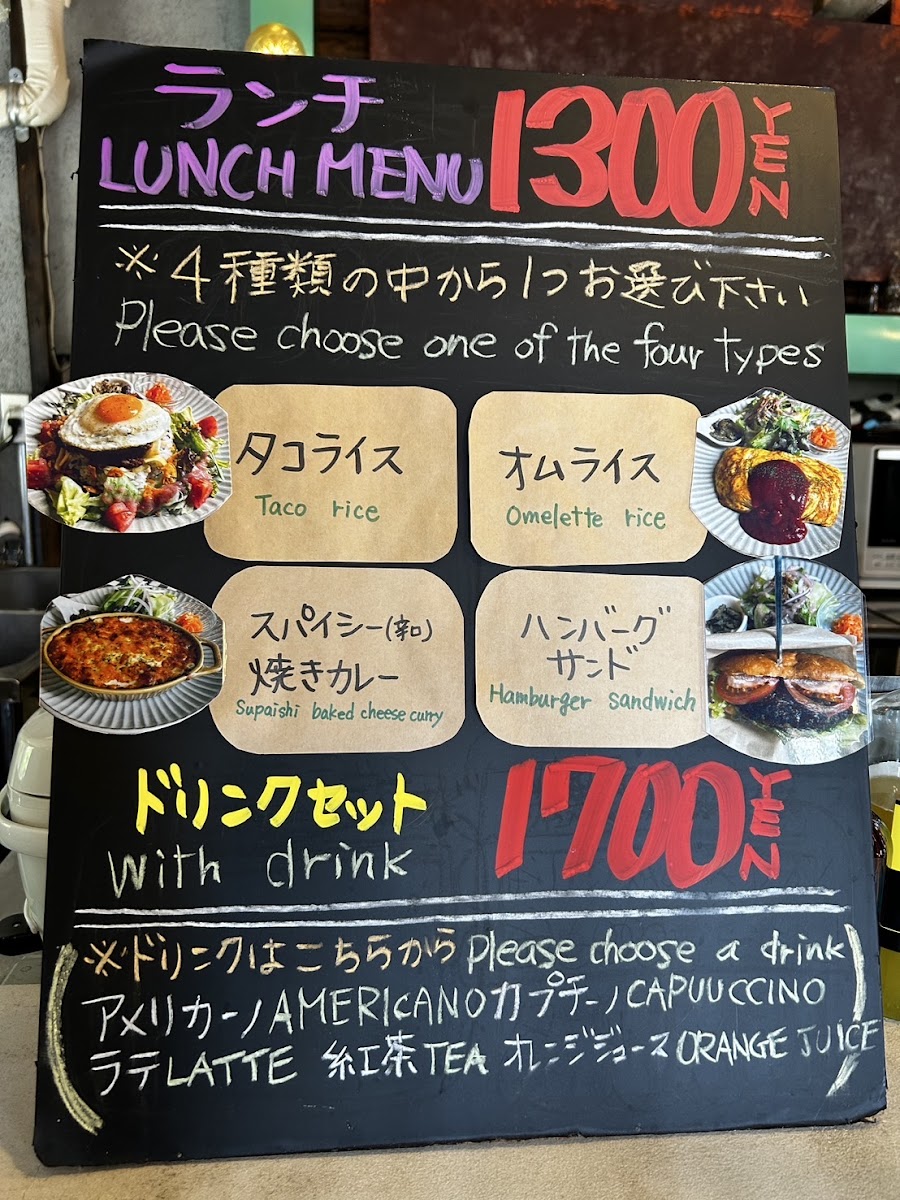 ランチ
LUNCH MENU 1300 YEN
※4種類の中から1つお選び下さい
Please choose one of the four types
タコライス
Taco rice
オムライス
Omelette rice
スパイシー(辛口)
焼きカレー
Supaishi baked cheese curry
ハンバーグ
サンド
Hamburger sandwich
ドリンクセット
with drink 1700 YEN
※ドリンクはこちらから Please choose a drink
アメリカーノ AMERICANO カプチーノ CAPUUCCINO
ラテ LATTE 紅茶 TEA オレンジジュース ORANGE JUICE